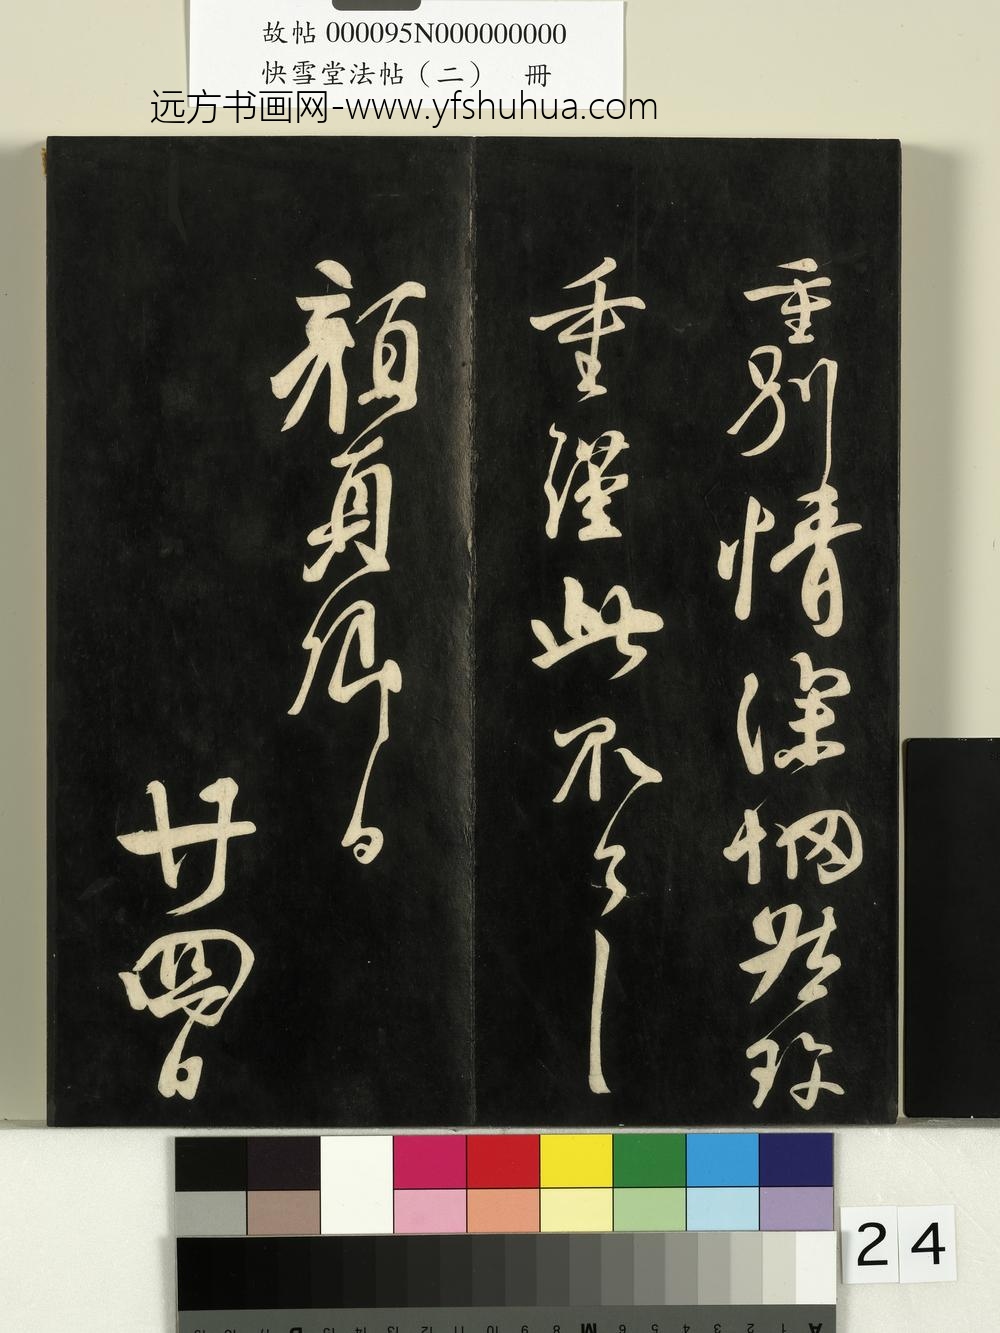 故帖 000095N000000000
快雪堂法帖（二） 冊
远方书画网-www.yfshuhua.com
重別情深惘然珍
重謹此不
顏真卿白
廿四日
24